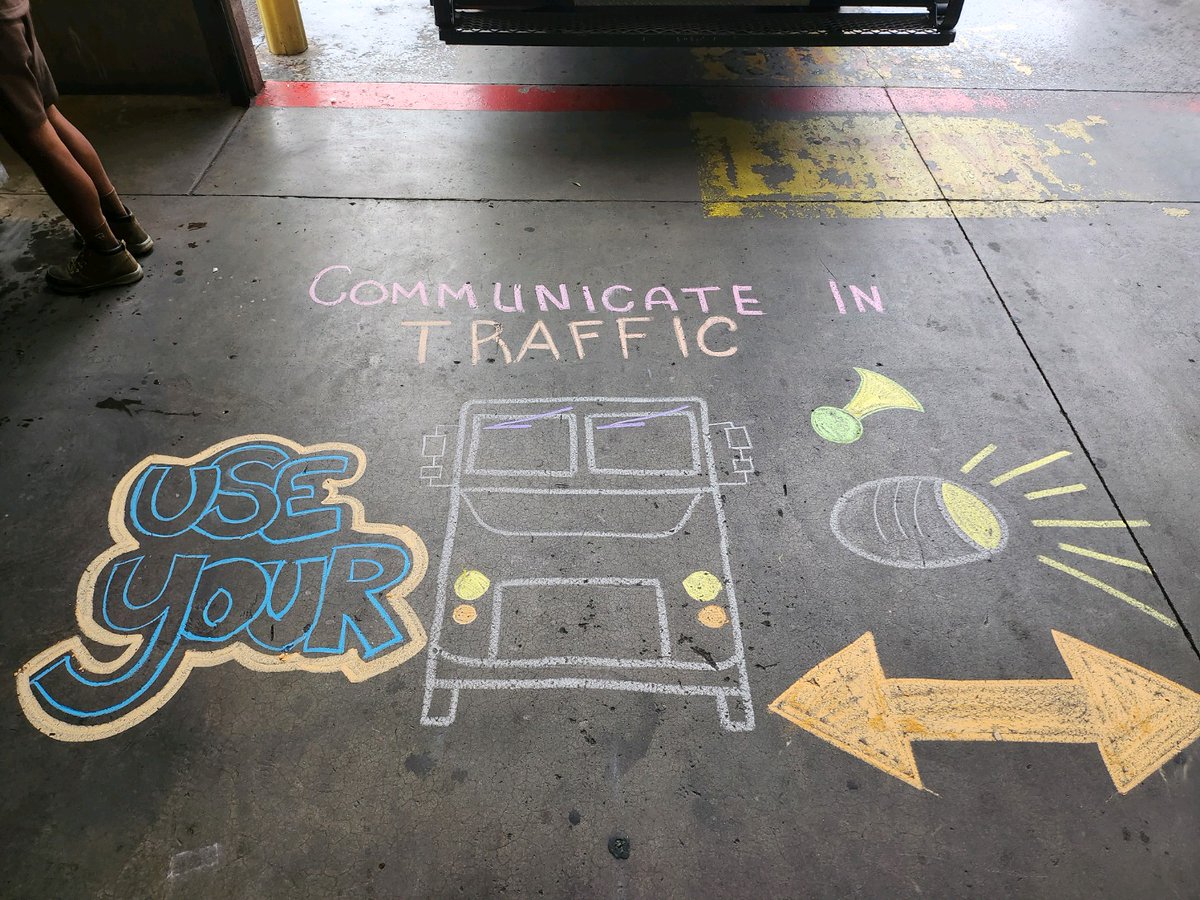 COMMUNICATE IN
TRAFFIC
USE
YOUR